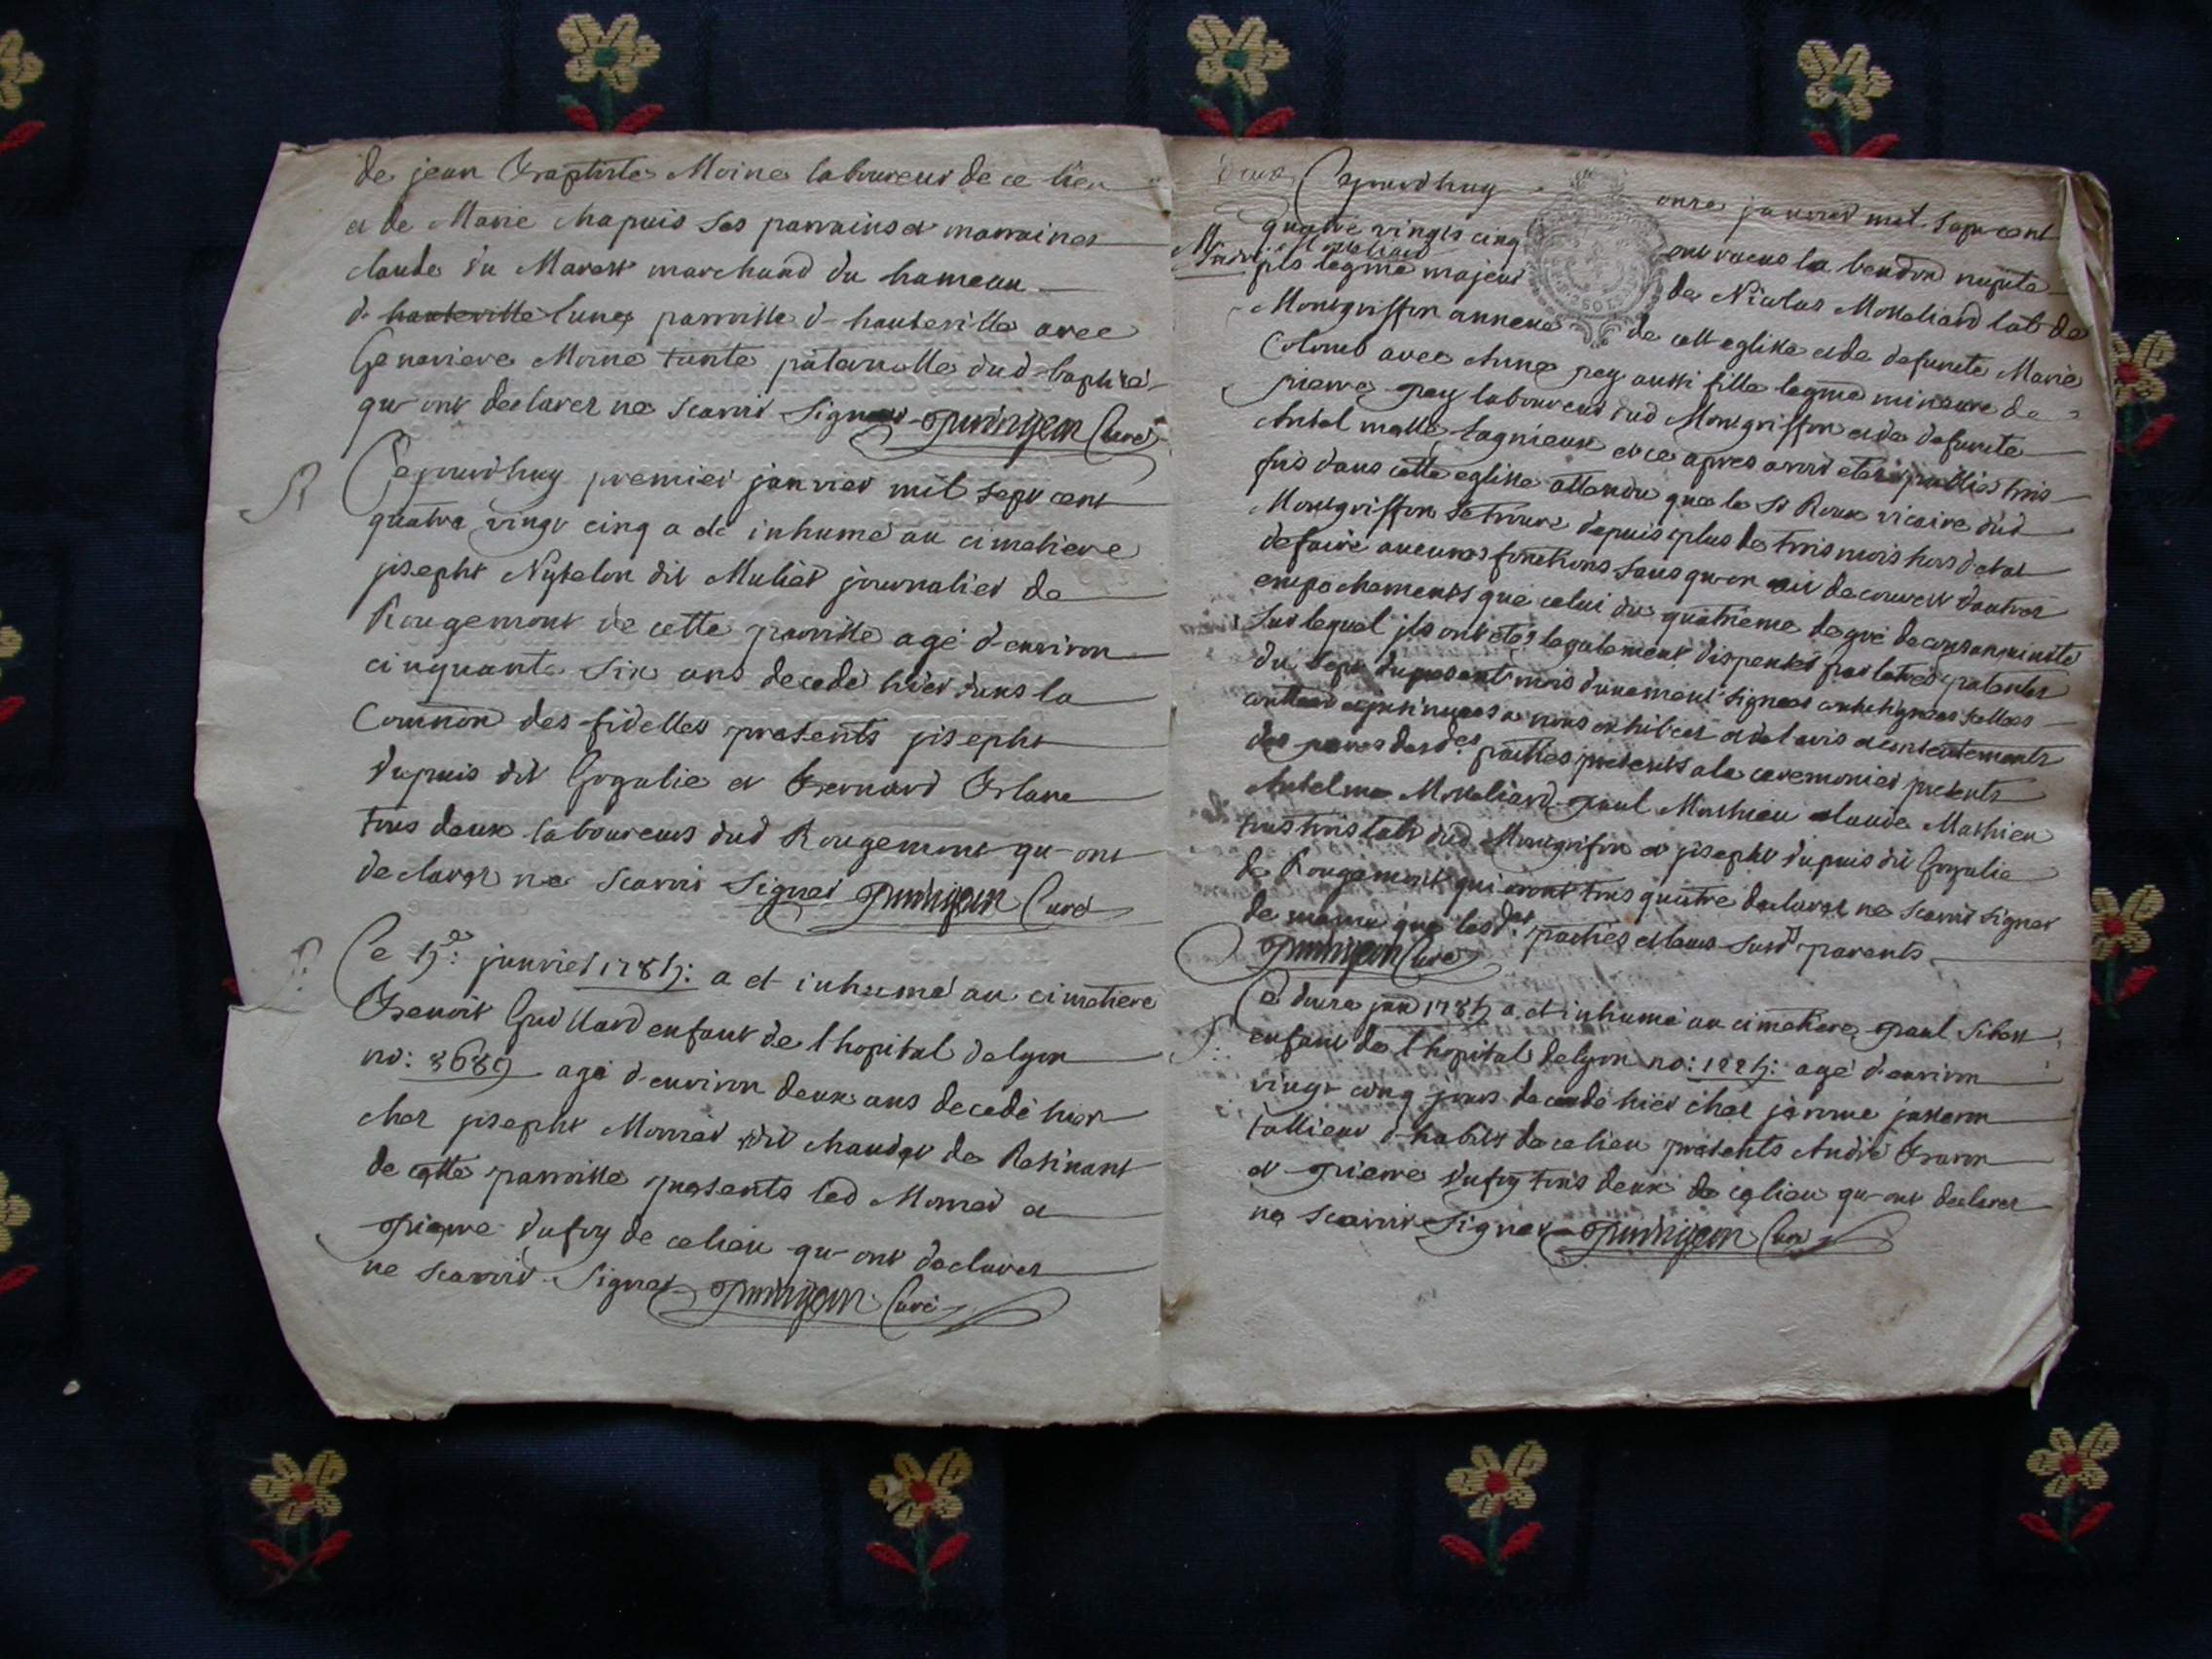 de jean Baptiste Moine laboureur de ce lieu
et de Marie chapuis ses parrains et marraines
claude du Marest marchand du hameau
d- hauteville lunes parroisse d- hauteville avec
Genevieve Moine tante paternelle dud- baptisé
qu- ont declarer ne scavoir signer Curé
R
Cejourdhuy premier janvier mil sept cent
quatre vingt cinq a ete inhumé au cimetiere
joseph dit Mulier journalier de
Rougemont de cette parroisse agé d-environ
cinquante six ans decedé hier dans la
Comunion des fidelles presents joseph
dupuis dit Gogalie et Bernard
tous deux laboureurs dud Rougemont qu- ont
declarer ne scavoir signer Curé
Ce janvier 178 a et inhumé au cimetiere
Benoit enfant de l hopital de lyon
no: agé d-environ deux ans decedé hier
chez joseph Monnet dit de Resinant
de cette parroisse presents led Monnet et
pierre dufoy de ce lieu qu- ont declarer
ne scavoir signer Curé
Cejourdhuy onze janvier mil sept cent
quatre vingts cinq ont recus la bendon nuptle
fils legme majeur de Nicolas Mossaliard lab de
Montgriffon annexe de cett eglise et de defuncte Marie
Colomb avec Anne pey aussi fille legme mineure de
pierre pey laboureur dud Montgriffon et de defuncte
Lagnieux et ce apres avoir etes publies trois
fois dans cette eglise attendu que le Sr Roux vicaire dud
Montgriffon se trouve depuis plus de trois mois hors d etat
de faire aucunes fonctions sans qu-on ait decouvert d autres
empechements que celui du quatrieme degré de consanguinité
sur lequel ils ont etes legalement dispenses par lettres patentes
du sept du present mois dument signees scellees
a nous exhibees et de l avis et consentements
des peres desdes parties presents a la ceremonies presents
Antelme Mossaliard paul Mathieu claude Mathieu
tous trois labs dud Mongrifon et joseph dupuis dit Gogalie
de Rougemont qui ont tous quatre declarer ne scavoir signer
de meme que lesdes parties et leurs susds parents
Curé
Ce douze janv 178 a et inhumé au cimetiere paul
enfant de l hopital de lyon no: agé d-environ
vingt cinq jours decedé hier chez
tallieur d-habits de ce lieu presents André
et pierre dufoy tous deux de ce lieu qu-ont declarer
ne scavoir signer Curé